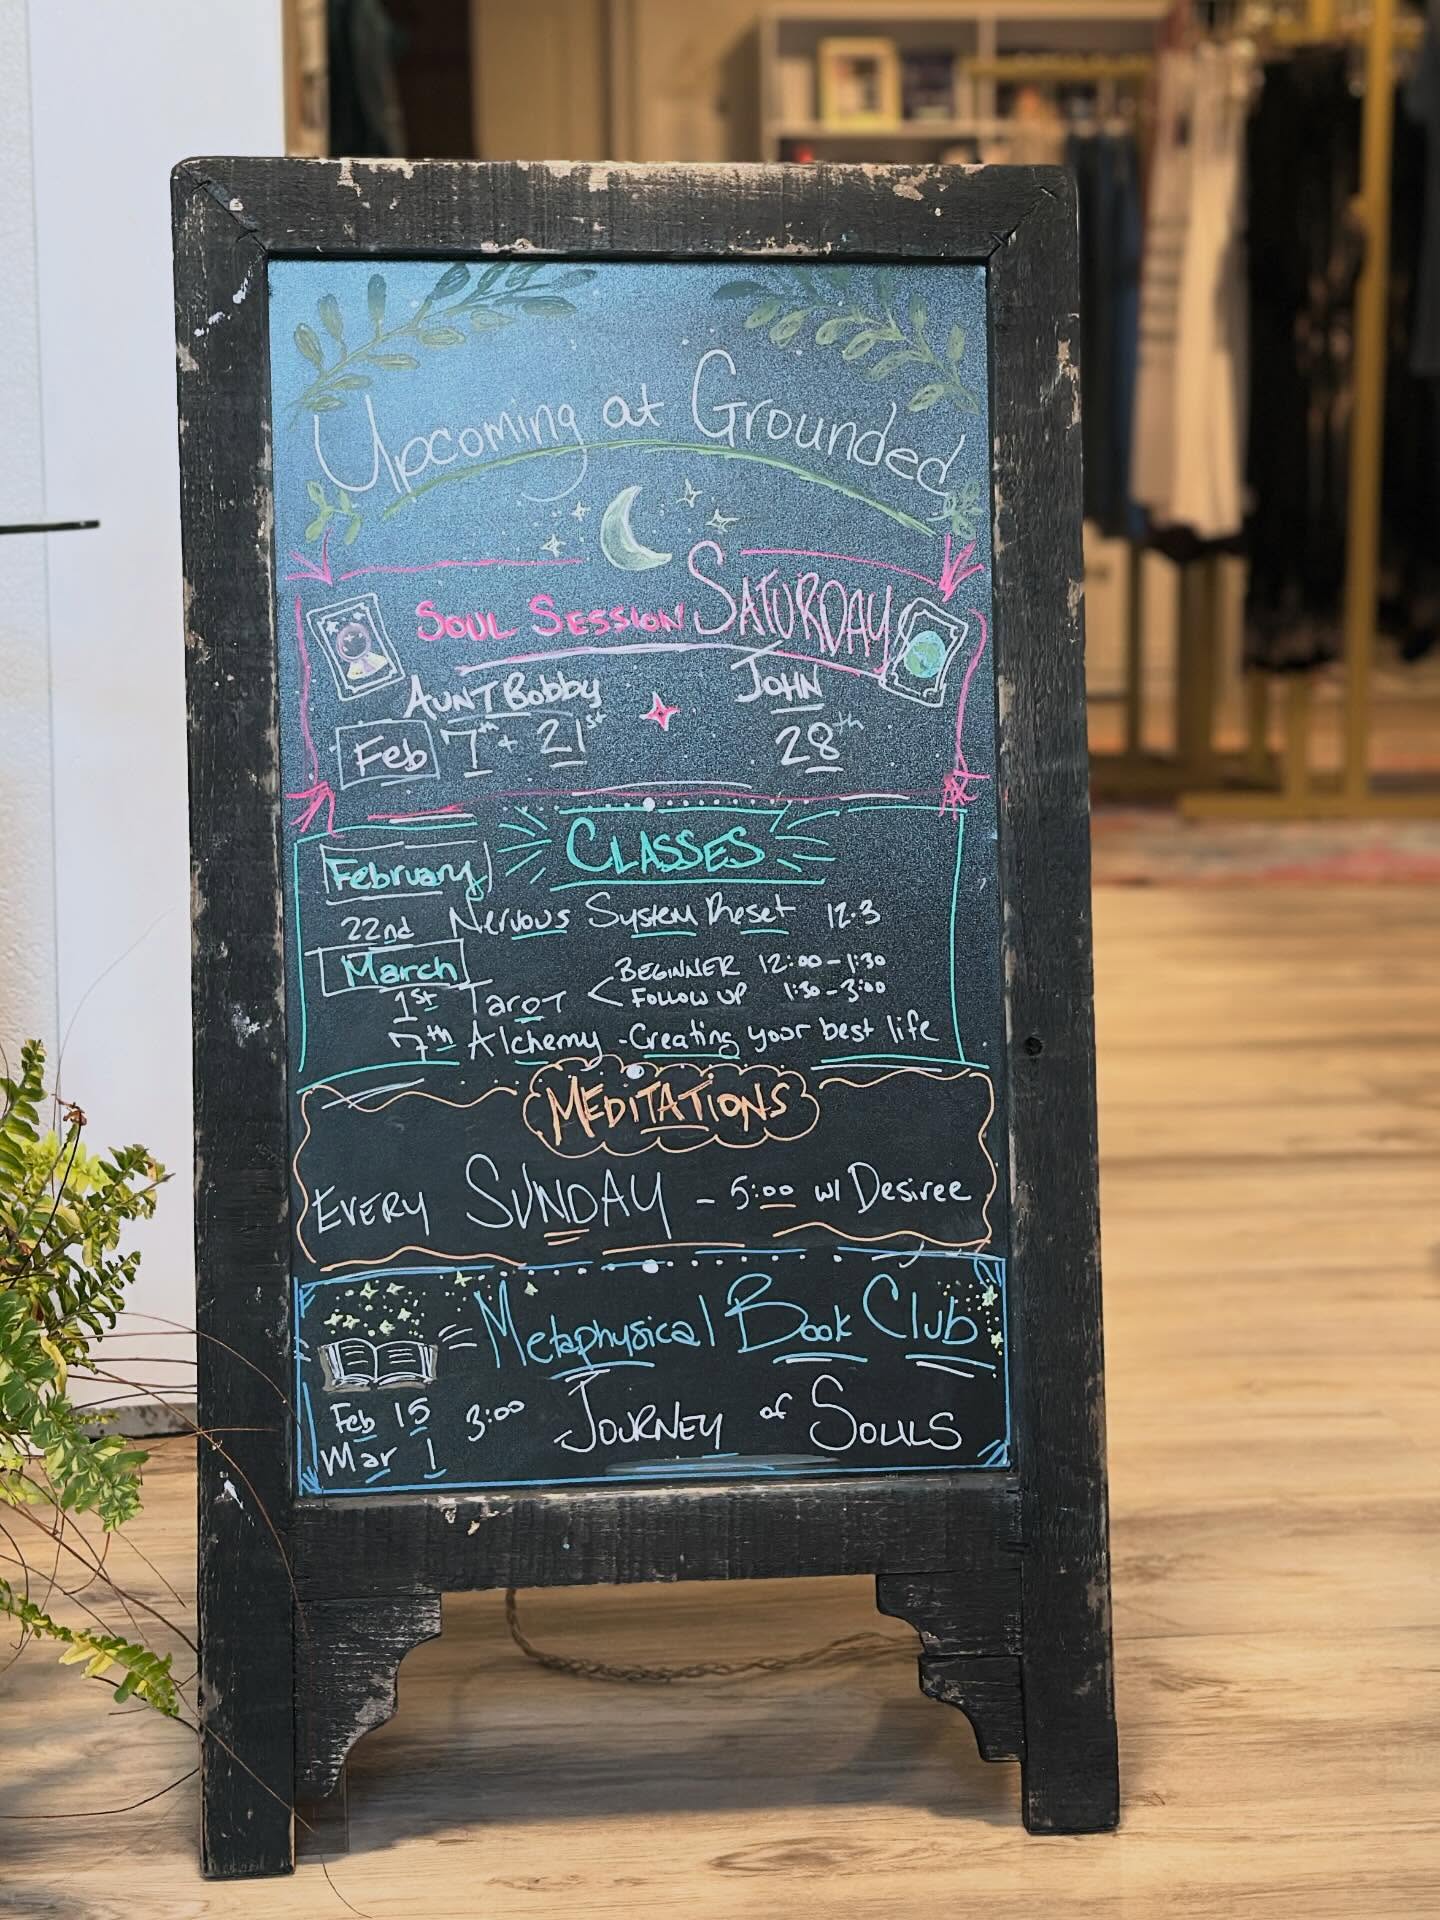 Upcoming at Grounded
SOUL SESSION SATURDAY
AUNT Bobby JOHN
Feb 7th + 21st 28th
CLASSES
February
22nd Nervous System Reset 12-3
March
1st Tarot < BEGINNER 12:00-1:30
FOLLOW UP 1:30-3:00
7th Alchemy - Creating your best life
MEDITATIONS
EVERY SUNDAY - 5:00 w/ Desiree
Metaphysical Book Club
Feb 15 3:00 JOURNEY of SOULS
Mar 1